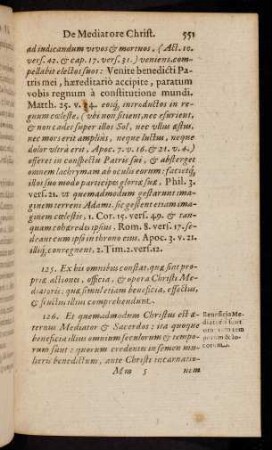 De Mediatore Christ. 551
ad iudicandum vivos & mortuos, (Act. 10.
vers. 42. & cap. 17. vers. 31.) veniens com-
pellabit electos suos: Venite benedicti Pa-
tris mei, hæreditariò accipite, paratum
vobis regnum à constitutione mundi.
Matth. 25. v. 34. eosq́; introductos in re-
gnum cæleste, (ubi non sitient, nec esurient,
& non cadet super illos Sol, nec ullus æstus,
nec mors erit ampliùs, neque luctus, neque
dolor ultrà erit, Apoc. 7. v. 16. & 21. v. 4.)
offeret in conspectu Patris sui, & absterget
omnem lachrymam ab oculis eorum: fatistq́;
illos suo modo participes gloriæ suæ, Phil. 3.
vers. 21. ut quemadmodum gestarunt ima-
ginem terreni Adami, sic gestent etiam imagi-
nem cælestis, 1. Cor. 15. vers. 49. & tan-
quam cohæredes ipsius, Rom. 8. vers. 17. se-
deant cum ipso in throno eius, Apoc. 3. v. 21.
illiq́; conregnent, 2. Tim. 2. vers. 12.
125. Ex his omnibus constat, quæ sint pro-
priæ actiones, officia, & opera Christi Me-
diatoris: quæ simul etiam beneficia, effectus,
& fructus illius comprehendunt.
126. Et quemadmodum Christus est æ-
ternus Mediator & Sacerdos: ita quoque
beneficia illius omnium seculorum & tempo-
rum sunt: quorum credentes in semen mu-
lieris benedictum, ante Christi incarnatio-
Beneficia Me-
diatoris sunt
omnium tem-
porum & lo-
corum.
Mm 5 nem